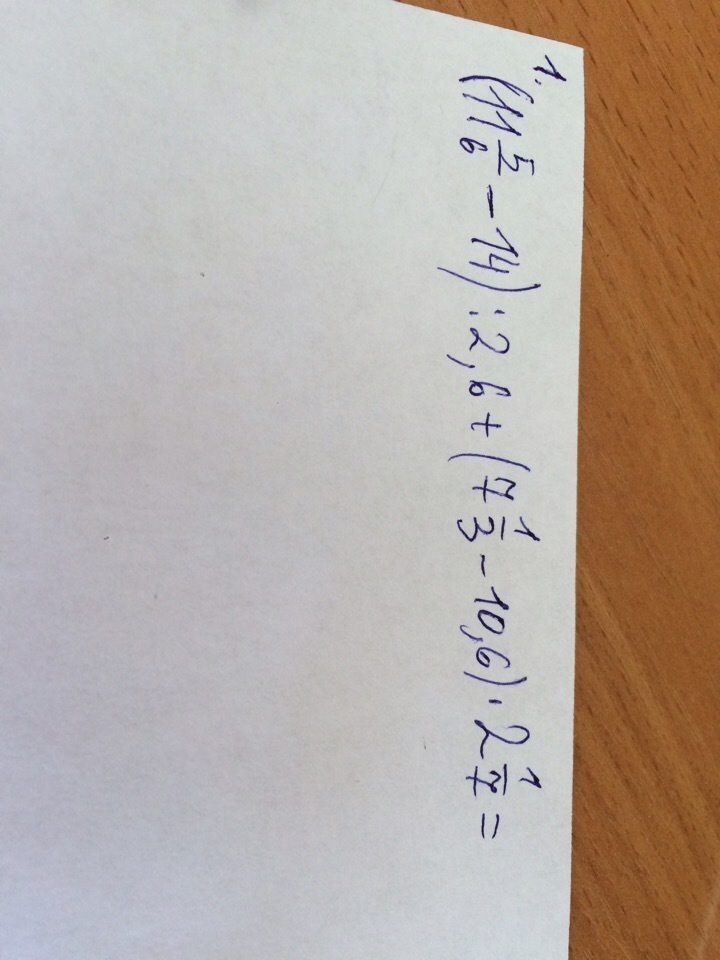 1.
(11 5/6 - 14) : 2,6 + (7 1/3 - 10,6) · 2 1/7 =